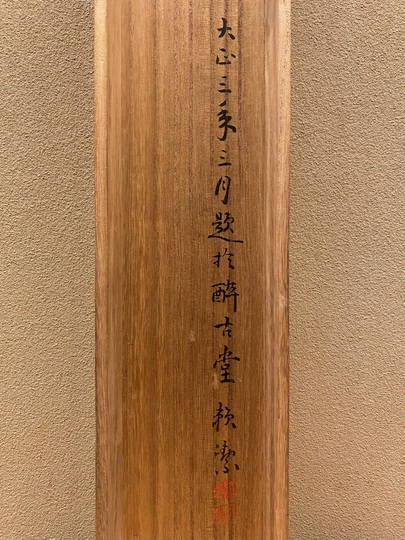 大正三年三月題於酔古堂 頼潔